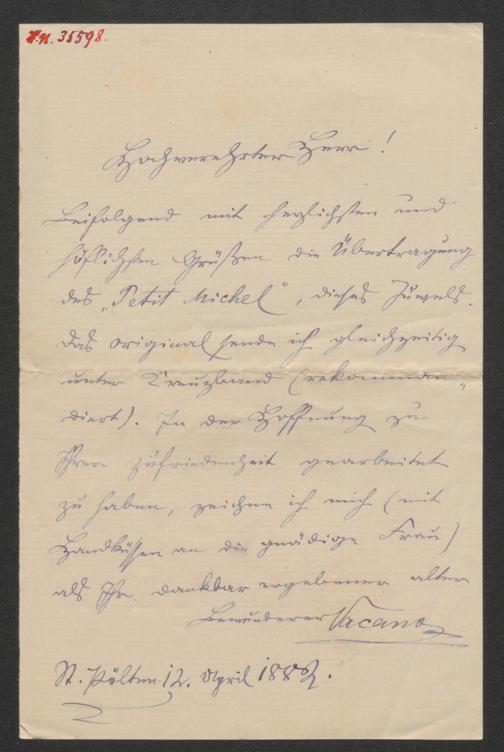 I.N. 36598.
Hochverehrter Herr!
Beifolgend mit herzlichsten und
höflichsten Grüßen die Übertragung
des „Petit Michel“, dieses Juwels.
Das Original sende ich gleichzeitig
unter Kreuzband (rekomman„
diert). In der Hoffnung zu
Ihrer Zufriedenheit gearbeitet
zu haben, zeichne ich mich (mit
Handküssen an die gnädige Frau)
als Ihr dankbar ergebener alter
Bewunderer Vacano
St. Pölten 12. April 1882.